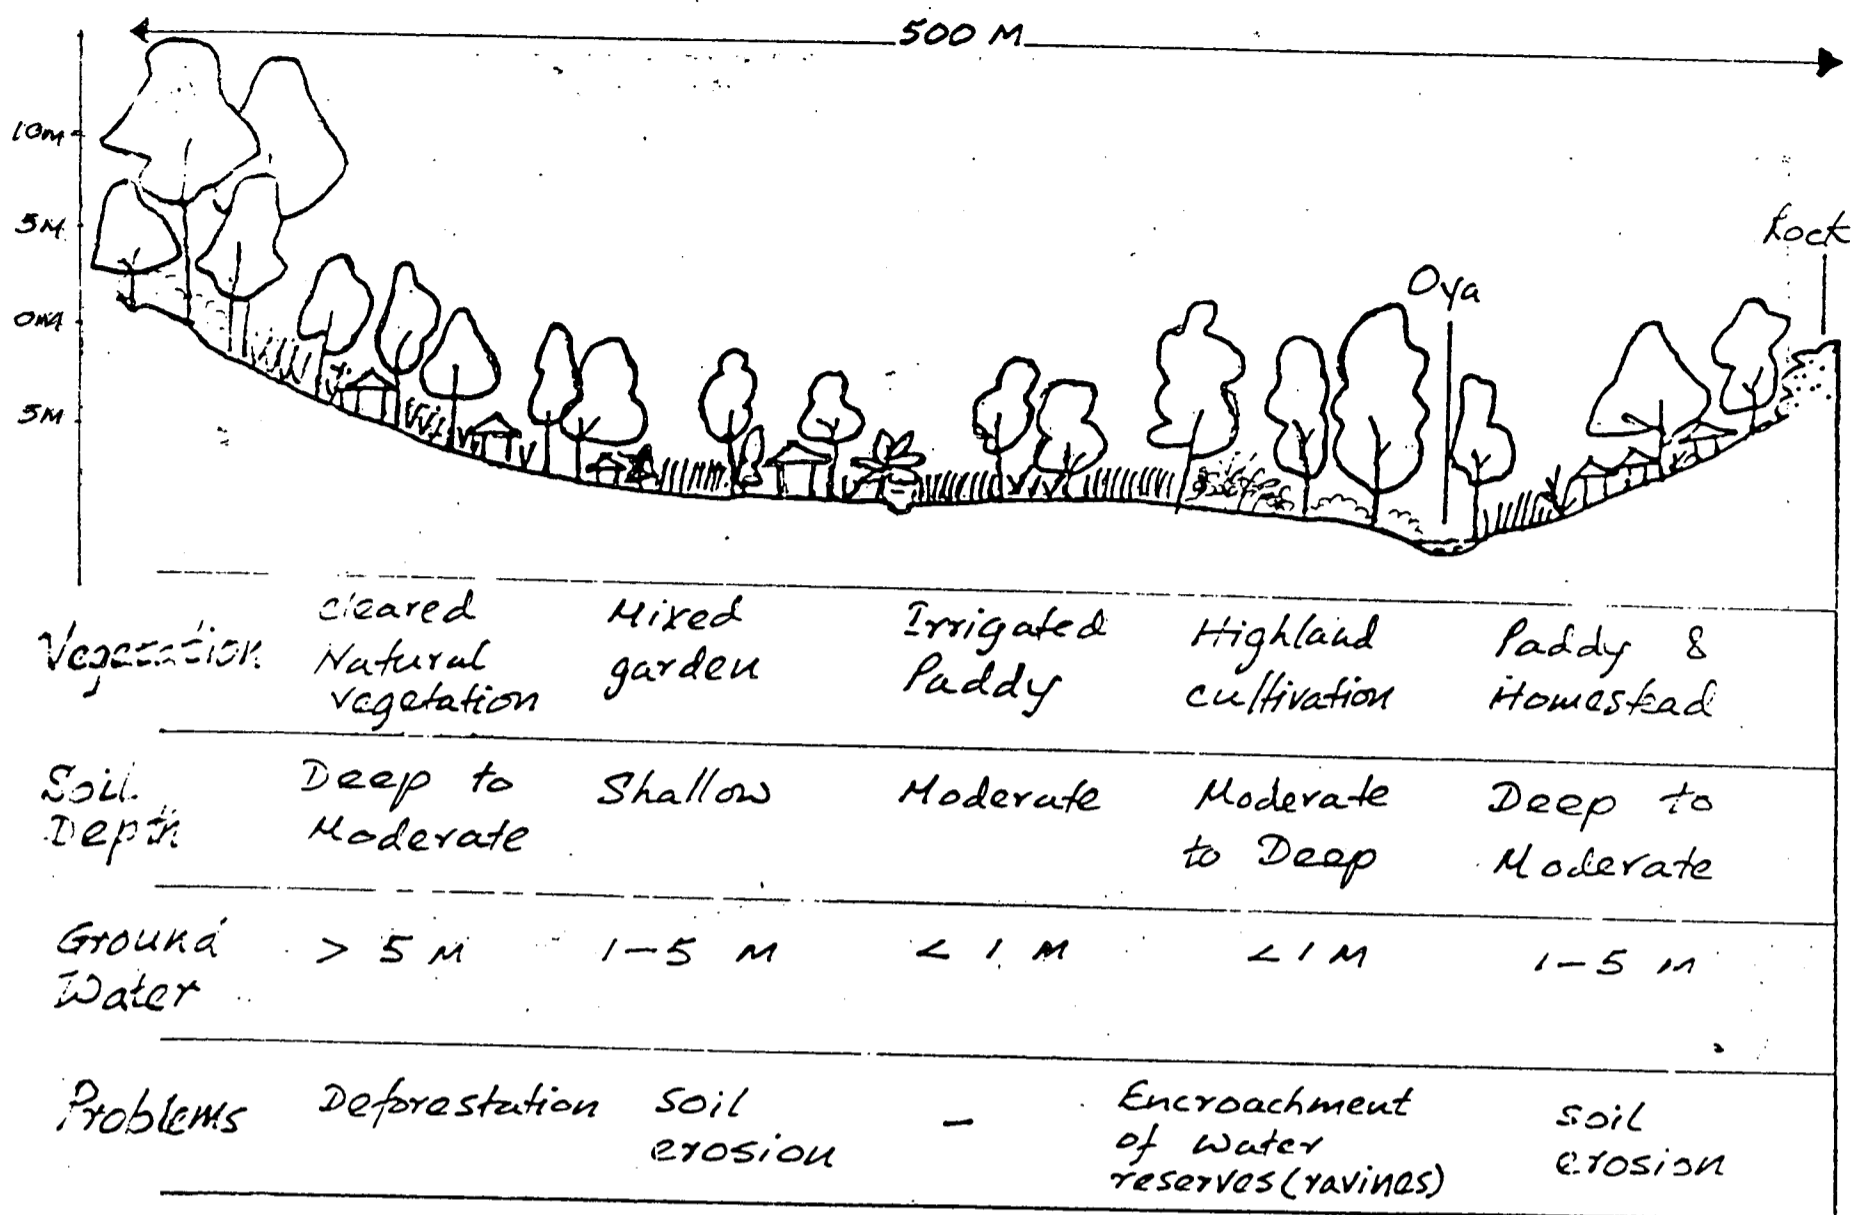 500 M
10m
5M
0m
5M
Rock
Oya
Vegetation
cleared
Natural
vegetation
Mixed
garden
Irrigated
Paddy
Highland
cultivation
Paddy &
Homestead
Soil
Depth
Deep to
Moderate
Shallow
Moderate
Moderate
to Deep
Deep to
Moderate
Ground
Water
> 5 M
1-5 M
< 1 M
<1 M
1-5 M
Problems
Deforestation
soil
erosion
-
Encroachment
of water
reserves (ravines)
soil
erosion